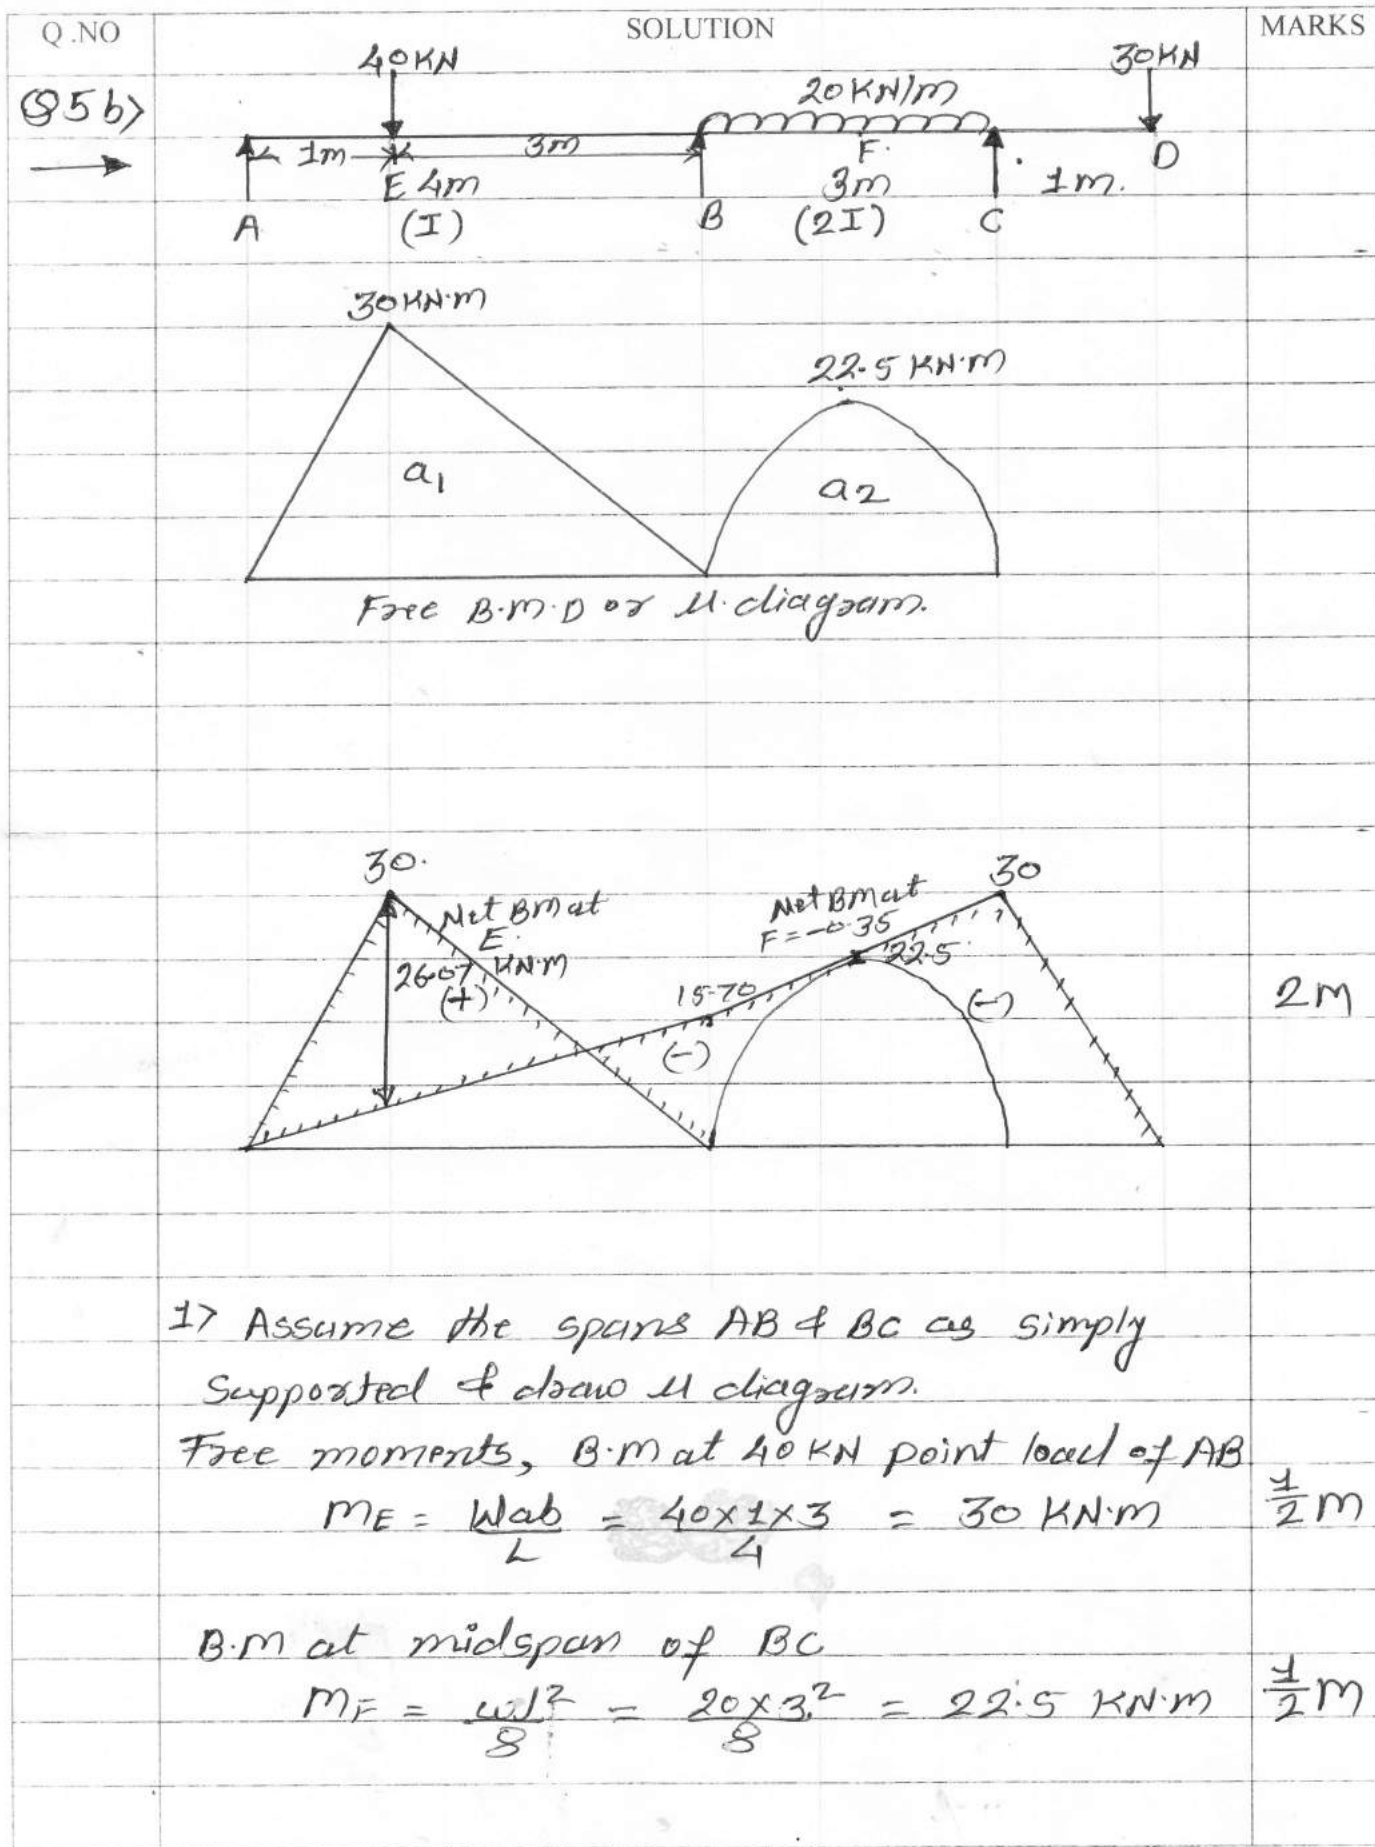 Q.NO SOLUTION MARKS
Q5 b>
40KN 30KN
20 KN/m
1m 3m F. D
E 4m 3m 1m.
A (I) B (2I) C
30KN·m
22.5 KN·m
a1 a2
Free B.M.D or μ.diagram.
30. 30
Net BM at Net BM at
E. F = -0.35
26.07 KN·m 22.5
(+) 15.70 (-) 2M
(-)
1> Assume the spans AB & BC as simply
Supported & draw μ diagram.
Free moments, B.M at 40 KN point load of AB
ME = Wab/L = 40×1×3/4 = 30 KN·m 1/2 M
B.M at midspan of BC
MF = wl²/8 = 20×3²/8 = 22.5 KN·m 1/2 M